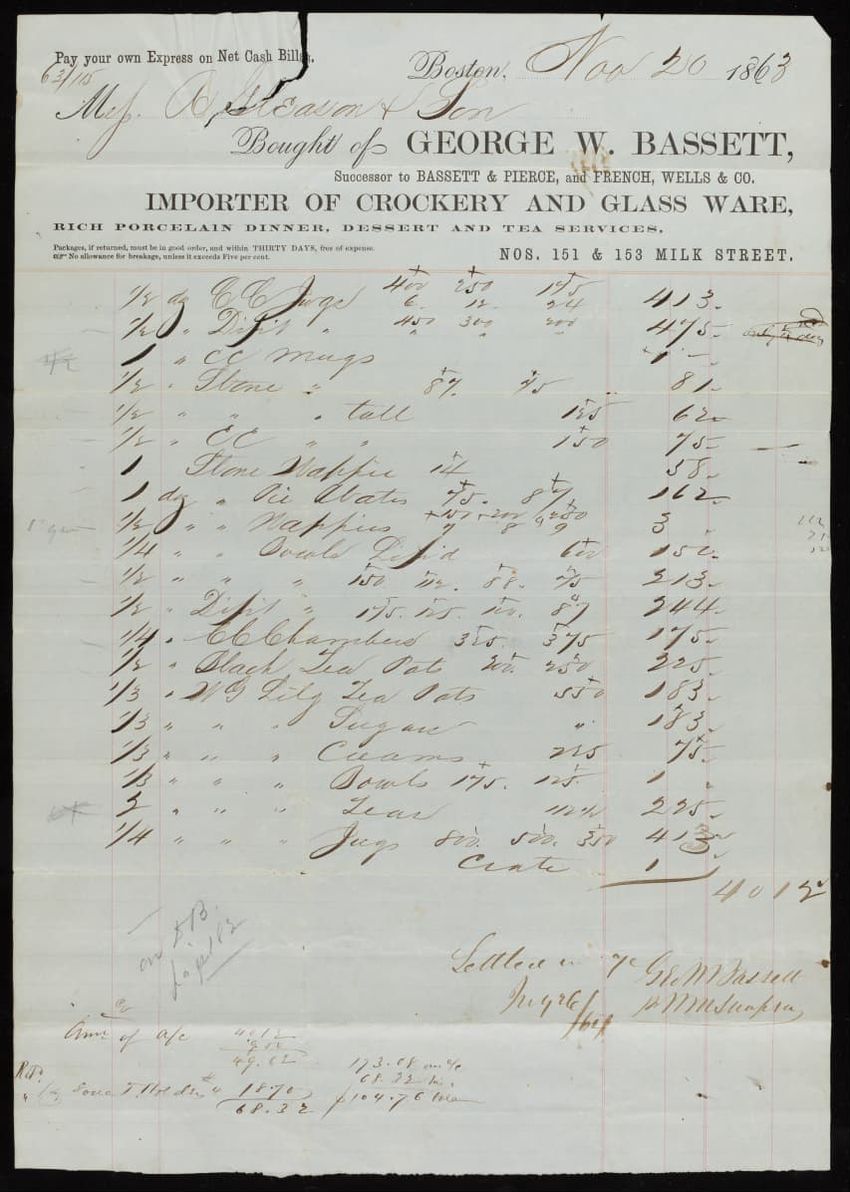 Pay your own Express on Net Cash Bills.
63/115
Boston, Nov 20 1863
Mess. A Gleason & Son
Bought of GEORGE W. BASSETT,
Successor to BASSETT & PIERCE, and FRENCH, WELLS & CO.
IMPORTER OF CROCKERY AND GLASS WARE,
RICH PORCELAIN DINNER, DESSERT AND TEA SERVICES.
Packages, if returned, must be in good order, and within THIRTY DAYS, free of expense.
No allowance for breakage, unless it exceeds Five per cent.
NOS. 151 & 153 MILK STREET.
1/2 dz CC Jugs 400 250 175 413
6 12 24
1/2 " Dipt " 450 300 200 475
1 " CC Mugs 1
1/2 " Stone " 87 75 81
1/2 " " " tall 125 62
1/2 " CC " " 150 75
1 Stone Nappie 14 58
1 dz " Pie Plates 75 87 162
1/2 " " Nappies 3
7 8 9
1/4 " " Bowls Lip'd 600 150
1/2 " " " 150 112 88 75 213
1/2 " Dipt " 175 125 100 87 244
1/4 " CC Chambers 325 375 175
1/2 " Black Tea Pots 200 250 225
1/3 " WG Lily Tea Pots 550 183
1/3 " " " Sugars " 183
1/3 " " " Creams 225 75
1/3 " " " Bowls 175 125 1
2 " " " Teas 112 1/2 225
1/4 " " " Jugs 800 500 350 413
Crate 1
4012
on
Settled in % Geo W Bassett
Amt of a/c 4012
49.62
173.08
68.32
18.70
68.32
104.76